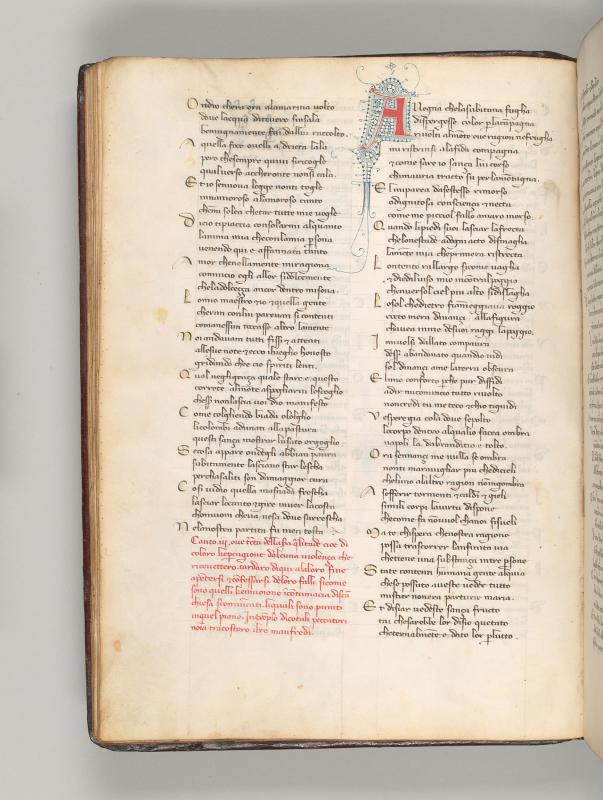 Ondio chera ora alamarina volto
doue lacqua diteuero sinsala
benignamente fui dallui ricolto.
A quella foce ouelli a dricta lala
pero chesempre quiui siricogle
qualuerso accheronte nonsi cala.
Et io senuoua legge nonti togle
innamoroso alamoroso canto
chemi solea chetar tutte mie uogle
Dicio tipiaccia consolarmi alquanto
lamma mia checonlamia psona
venendo qui e affannata tanto
Amor chenellamente miragiona
comincio egli allor sidolcemente
cheladolceçça ancor dentro misona.
Lomio maestro et io et quella gente
cheran conlui pareuan si contenti
comanessun toccasse altro lamente
Noi andauam tutti fissi et attenti
allesue note et ecco iluegho honesto
gridando che cio spiriti lenti.
Qual negligença quale stare e questo
correte almonte aspogliarui loscoglio
chessi nonlascia uoi dio manifesto
Come colghendo biada ologlio
licolombi adunati allapastura
questi sança mostrar lusato orgoglio
Secosa appare ondegli abbian paura
subitamente lasciano star lescha
perchasaliti son damaggior cura
Cosi uidio quella masnada frescha
lasciar locanto et gire inuer lacosta
chomuom cheua nesa doue sirrescha
Nelanostra partita fu men tosta
Canto .iij. oue tcta dellasca qlitade cioe di
coloro che
apetersi et cõfessarsi deloro falli. sicome
sono quelli
chiesa scomunicati. liquali sono puniti
inquel piano. Intrẽplo dicotali peccatori
noia tracostoro ilre manfredi.
Auegna chelasubitana fugha
dispergesse color placampagna
riuolti almonte oue ragion nefrugha
mi ristrinsi alafida compagna
et come sare io sança lui corso
chimauria tracto su per lamontagna.
El miparea dasestesso rimorso
o dignitosa conscienza et necta
come te picciol fallo amaro morso.
Quando lipiedi suoi lasciar lafrecta
chelonestade adogni acto dismagha
lamente mia cheprimera ristrecta
Lontento rallargo sicome uagha
et diedilmio incontrilpoggio
chenuersolciel piu alto sidislagha
Losol chedietro fiammeggiaua roggio
rocto mera dinançi allafigura
chauea inme desuoi raggi lapoggio.
I miuolsi dallato conpaura
dessere abandonato quandio uidi
sol dinançi ame laterra obscura
El mio conforto pche pur diffidi
adir mi comincio tutto riuolto
noncredi tu me teco et chio tiguidi
Vespero gia cola doue sepolto
lo corpo dentro alqualio facea ombra
napoli la dabrandiçio e tolto.
Ora senançi me nulla se ombra
nonti marauigliar piu chedicieli
cheluno alaltro ragion nõingombra
A sofferir tormenti et caldi et gieli
simili corpi lauirtu dispone
checome fa nonuol chanoi sisueli
Mate chispera chenostra ragione
possa trascorrer lanfinita uia
chetiene una substança intre psone
State contenti humana gente alquia
chese possuto aueste ueder tutto
mistier nonera parturir maria.
Et disiar uedeste sança fructo
tai chesarebbe lor disio quetato
cheternalmẽte e dato lor pluto.